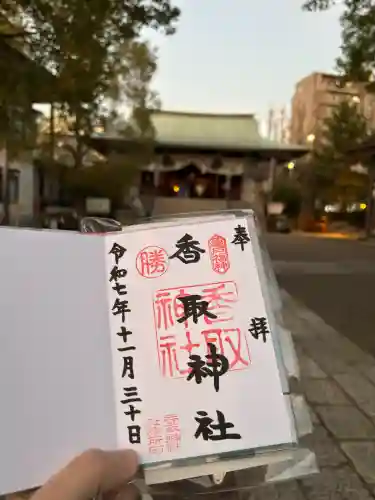 奉拝
香取神社
香取
神社
勝
令和七年十一月三十日